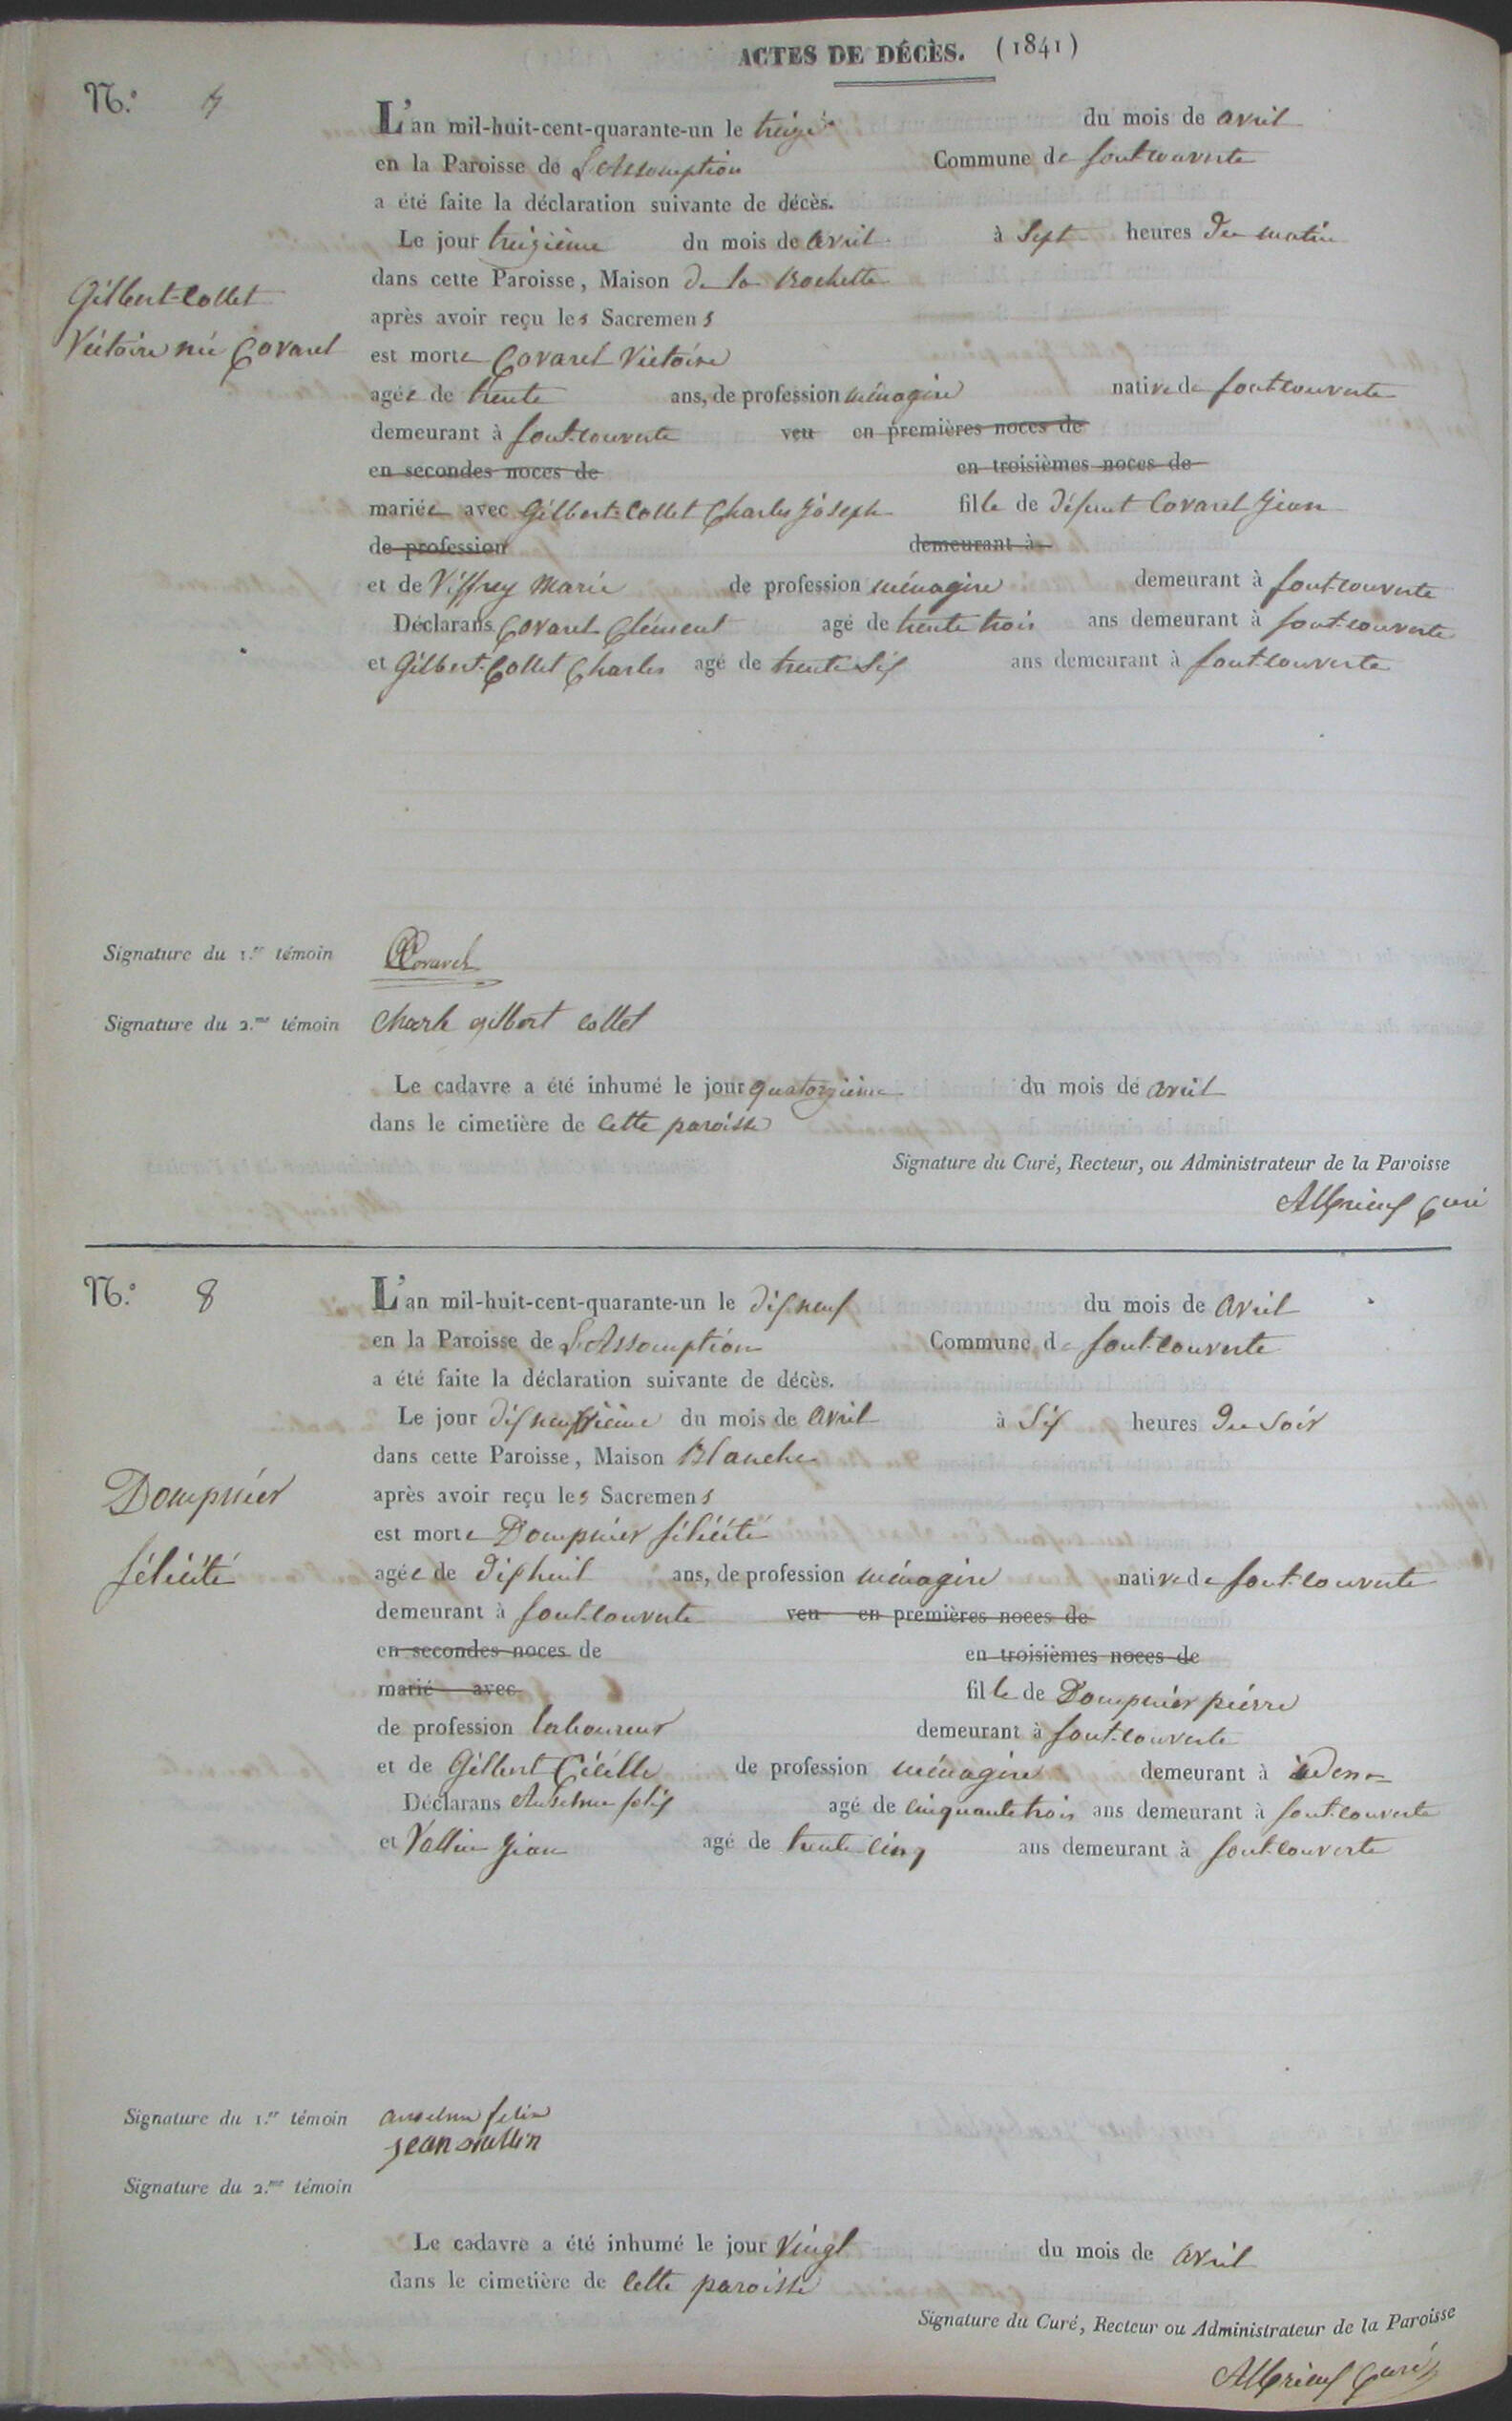 ACTES DE DÉCÈS. (1841)
N.º 7
L'an mil-huit-cent-quarante-un le treize du mois de avril
en la Paroisse de L'Assomption Commune de fontcouverte
a été faite la déclaration suivante de décès.
Le jour treizième du mois de avril à Sept heures du matin
dans cette Paroisse, Maison de la Rochette
Gilbert-Collet
Victoire née Covarel
après avoir reçu les Sacremens
est morte Covarel Victoire
agée de trente ans, de profession ménagère native de fontcouverte
demeurant à font-couverte veu en premières noces de
en secondes noces de en troisièmes noces de
mariée avec Gilbert-Collet Charles Joseph fille de défunt Covarel Jean
de profession demeurant à
et de Viffrey Marie de profession ménagère demeurant à font-couverte
Déclarans Covarel Clément agé de trente trois ans demeurant à font-couverte
et Gilbert-Collet Charles agé de trente Six ans demeurant à fontcouverte
Signature du 1.er témoin Covarel
Signature du 2.me témoin Charle gilbert collet
Le cadavre a été inhumé le jour quatorzième du mois de avril
dans le cimetière de cette paroisse
Signature du Curé, Recteur, ou Administrateur de la Paroisse
Curé
N.º 8
L'an mil-huit-cent-quarante-un le dix neuf du mois de avril
en la Paroisse de L'Assomption Commune de font-couverte
a été faite la déclaration suivante de décès.
Le jour dix neuvième du mois de avril à Six heures du Soir
dans cette Paroisse, Maison Blanche
Dompnier
félicité
après avoir reçu les Sacremens
est morte Dompnier félicité
agée de dix huit ans, de profession ménagère native de font-couverte
demeurant à font-couverte veu en premières noces de
en secondes noces de en troisièmes noces de
marié avec fille de Dompnier pierre
de profession laboureur demeurant à font-couverte
et de Gilbert de profession ménagère demeurant à idem
Déclarans Anselme félix agé de cinquante trois ans demeurant à font-couverte
et Vallin Jean agé de trente cinq ans demeurant à font-couverte
Signature du 1.er témoin anselme felix
jean vallin
Signature du 2.me témoin
Le cadavre a été inhumé le jour Vingt du mois de avril
dans le cimetière de cette paroisse
Signature du Curé, Recteur ou Administrateur de la Paroisse
Curé